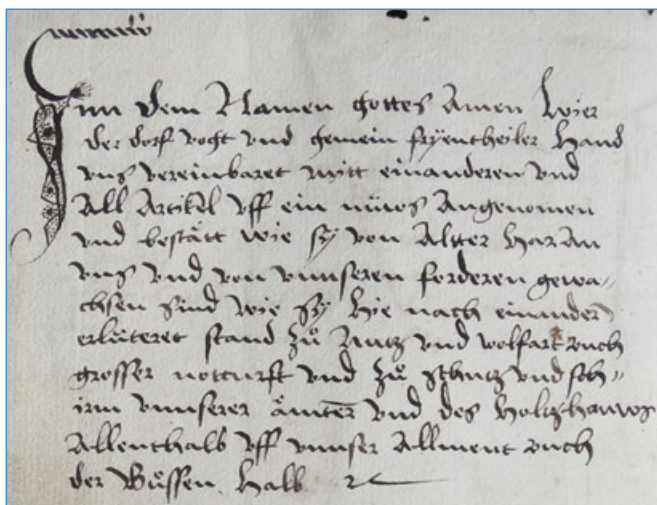 Inn dem Namen gottes Amen Wier
der dorf vogt vnd gemein fryentheiler Hand
vns vereinbaret mitt einanderen vnd
All Artikel vff ein nüws Angenomen
vnd bestätt wie sy von Altter har An
vns vnd von vnnseren forderen gewa-
chsen sind wie sy hie nach einander
erlüteret stand zů nutz vnd wolfart ouch
grosser notturft vnd zů schutz vnd sch-
irm vnnserer ämter vnd des holtzhauws
Allenthalb vff vnnser Allment ouch
der Bůssen halb